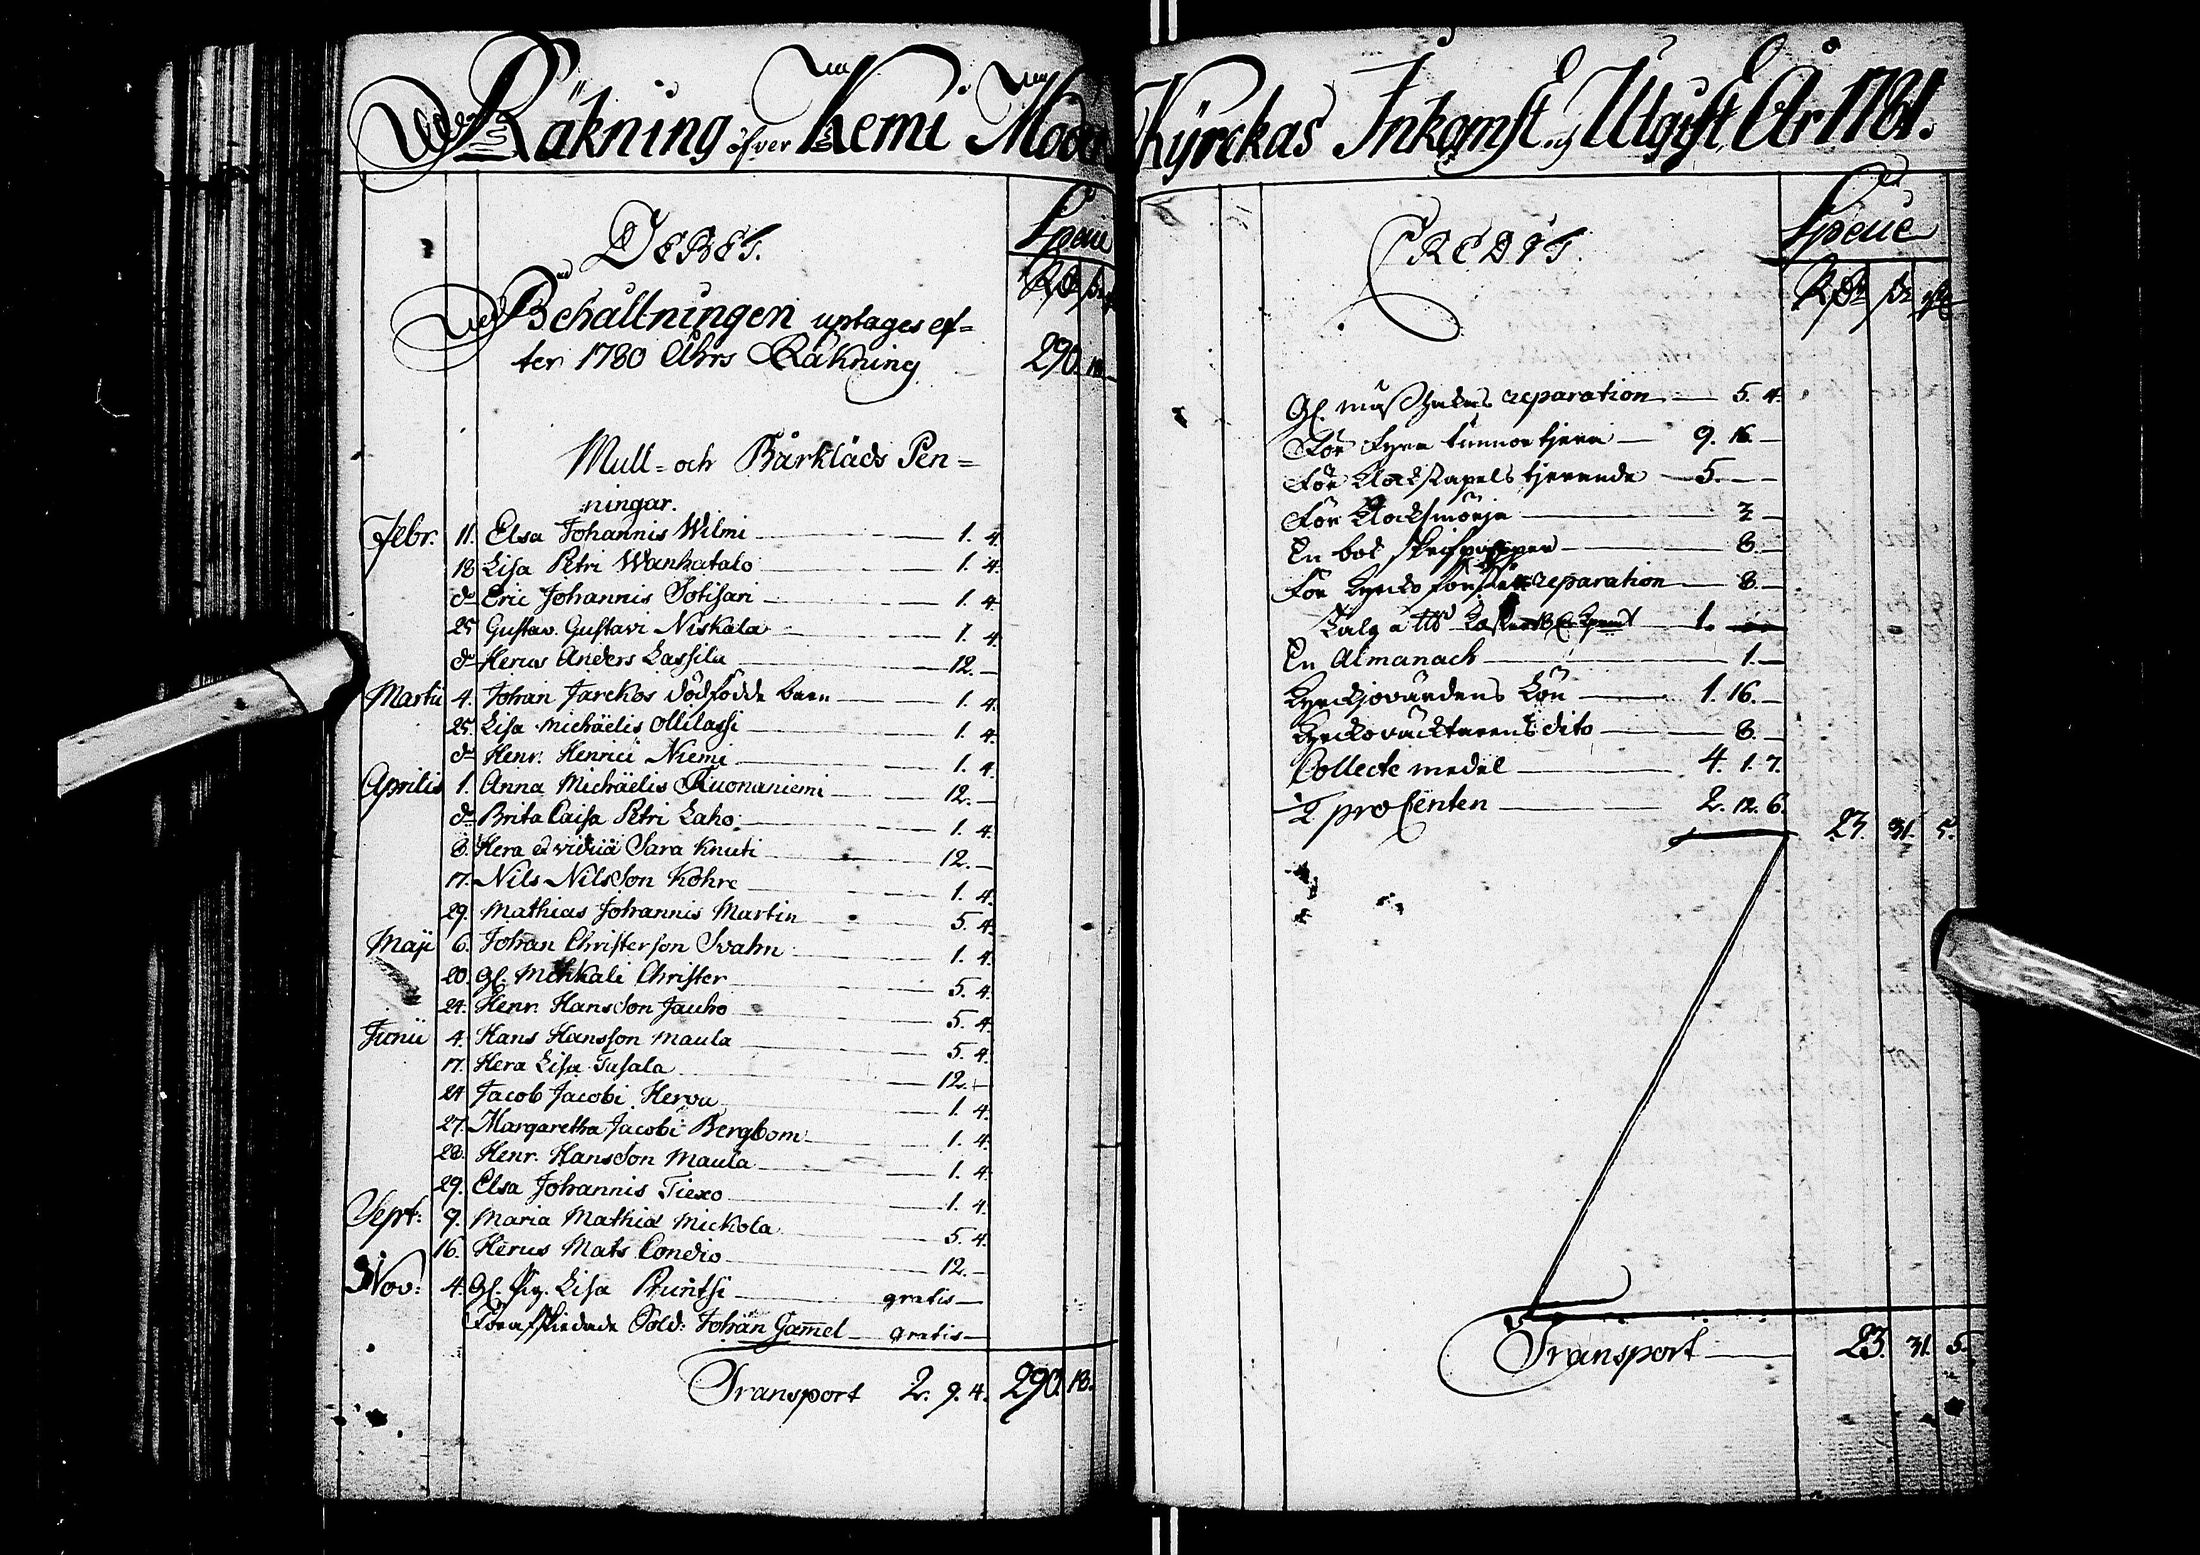 Räkning öfver Kemi Moder Kyrckas Inkomst och Utgift År 1781.
DEBET.
Specie
Rdr sk
Behållningen uptages ef=
ter 1780 Åhrs Räkning 290. 18.
Mull= och Bårkläds Pen=
ningar.
Febr. 11. Elsa Johannis Wilmi 1. 4.
18 Lisa Petri Wankatalo 1. 4.
do Eric Johannis Sotisari 1. 4.
25 Gustav. Gustavi Niskala 1. 4.
do Herus Anders Lassila 12.
Martii 4. Johan Jarckos dödfödde barn 1. 4.
25. Lisa Michäelis Ollilassi 1. 4.
do Henr. Henrici Niemi 1. 4.
Aprilis 1. Anna Michäelis Ruonaniemi 12.
do Brita Caisa Petri Laho 1. 4.
8. Hera et vidua Sara Knuti 12.
17. Nils Nilsson Köhre 1. 4.
29. Mathias Johannis Martin 5. 4.
Maji 6. Johan Christerson Svahn 1. 4.
20. Gl. Mihkali Christer 5. 4.
24. Henr. Hansson Jauho 5. 4.
Junii 4. Hans Hansson Maula 5. 4.
17. Hera Lisa Tusala 12.
24 Jacob Jacobi Herva 1. 4.
27. Margaretha Jacobi Bergbom 1. 4.
28. Henr. Hansson Maula 1. 4.
29. Elsa Johannis Tiexo 1. 4.
Sept: 9. Maria Mathiæ Mickola 5. 4.
16. Herus Mats Condio 12.
Nov: 4. Gl. Pig. Lisa Pruntsi gratis
Förafskiedade Sold: Johan Gamel gratis
Transport 2. 9. 4. 290. 18.
CREDIT.
Specie
Rdr sk
Gl. mässhakens reparation 5. 4.
För fyra tunnor tjära 9. 16.
För Klockstapels tjärande 5.
För Klocksmörja 2
En bok skrifpapper 8.
För kyrcko reparation 8.
Talg a 1.
En Almanach 1.
Kyrckjovärdens Lön 1. 16.
Kyrckovacktarens dito 8.
Collecte medel 4. 1. 7.
1/2 procenten 2. 12. 6.
23. 31. 5.
Transport 23. 31. 5.